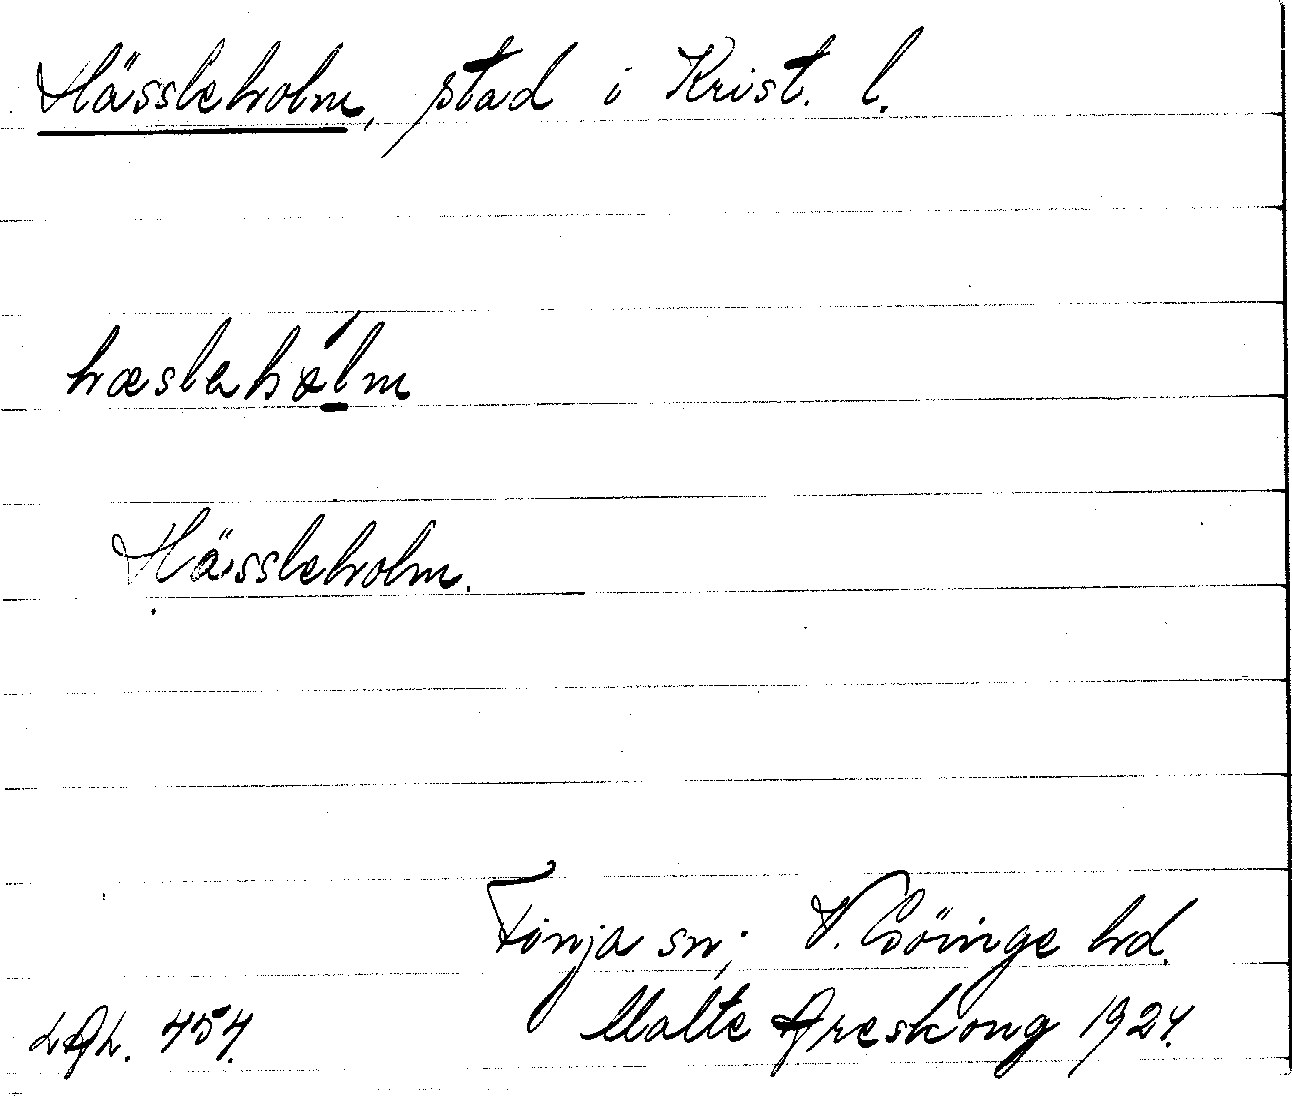 Hässleholm, stad i Krist. l.
hæslehólm
Hässleholm.
Finja sn; V. Göinge hd.
Malte Areskoug 1924.
454.